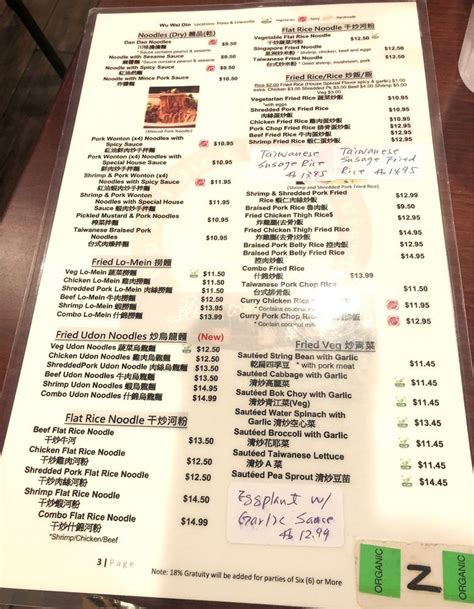 Wu Wei Din Locations: Plano & Lewisville Vegetarian Spicy Handmade
Noodles (Dry) 麵品(乾)
Dan Dan Noodles $9.50
*Sauce contains peanut & sesame
Noodle with Sesame Sauce $9.50
麻醬麵 *Sauce contains peanut & sesame
Noodle with Spicy Sauce $9.50
紅油拌麵
Noodle with Mince Pork Sauce $9.50
炸醬麵
(Minced Pork Noodle)
Pork Wonton (x4) Noodles with
Spicy Sauce $11.95
紅油鮮肉抄手拌麵
Pork Wonton (x4) Noodles
鮮肉抄手拌麵 $11.95
Shrimp & Pork Wonton (x4)
Noodles with Spicy Sauce $11.95
紅油蝦肉抄手拌麵
Shrimp & Pork Wonton
Noodles with Special House $11.95
Sauce 蝦肉抄手拌麵
Pickled Mustard & Pork Noodles $10.95
榨菜肉絲拌麵
Taiwanese Braised Pork
Noodles $10.95
台式肉燥拌麵
Fried Lo-Mein 撈麵
Veg Lo-Mein 蔬菜撈麵 $11.50
Chicken Lo-Mein 雞肉撈麵 $11.50
Shredded Pork Lo-Mein 肉絲撈麵 $11.50
Beef Lo-Mein 牛肉撈麵 $12.50
Shrimp Lo-Mein 蝦仁撈麵 $12.50
Combo Lo-Mein 什錦撈麵 $13.99
Fried Udon Noodles 炒烏龍麵 (New)
Veg Udon Noodles 蔬菜烏龍麵 $12.50
Chicken Udon Noodles 雞肉烏龍麵 $12.50
Shredded Pork Udon Noodles 肉絲烏龍麵 $12.50
Beef Udon Noodles 牛肉烏龍麵 $13.50
Shrimp Udon Noodles 蝦仁烏龍麵 $13.50
Combo Udon Noodles 什錦烏龍麵 $14.99
Flat Rice Noodle 干炒河粉
Beef Flat Rice Noodle $13.50
干炒牛河
Chicken Flat Rice Noodle $12.50
干炒雞肉河粉
Shredded Pork Flat Rice Noodle $12.50
干炒肉絲河粉
Shrimp Flat Rice Noodle $14.99
干炒蝦河粉
Combo Flat Rice Noodle $14.99
干炒什錦河粉
*Shrimp/Chicken/Beef
Flat Rice Noodle 干炒河粉
Vegetable Flat Rice Noodle $11.50
干炒蔬菜河粉
Singapore Fried Noodle $12.50
*Shrimp, chicken, beef and eggs
Taiwanese Fried Noodle $12.50
Fried Rice/Rice 炒飯/飯
Rice $2.00 Fried Rice (House Special Flavor spicy & garlic) $1.00
Vegetarian Fried Rice 蔬菜炒飯 $10.95
*with eggs
Shredded Pork Fried Rice $10.95
肉絲蛋炒飯
Chicken Fried Rice 雞肉蛋炒飯 $10.95
Pork Chop Fried Rice 排骨蛋炒飯 $12.95
Beef Fried Rice 牛肉蛋炒飯 $11.95
Shrimp Fried Rice 蝦仁蛋炒飯 $12.95
Taiwanese Susage Rice $12.95
Taiwanese Susage Fried Rice
(Shrimp and Shredded Pork Fried Rice)
Shrimp & Shredded Pork Fried $12.99
Rice 蝦仁肉絲炒飯
Braised Pork Rice 魯肉飯 $10.95
Fried Chicken Thigh Rice
炸雞腿(去骨)飯 $12.95
Braised Pork Belly Rice 控肉飯 $12.95
Combo Fried Rice $13.99
什錦炒飯
Taiwanese Pork Chop Rice $12.95
台式排骨飯
Curry Chicken Rice $11.95
* Contains coconut milk
Curry Pork Chop Rice $12.95
* Contain coconut milk
Fried Veg 炒青菜
Sautéed String Bean with Garlic $14.45
乾扁四季豆 * with pork meat
Sautéed Cabbage with Garlic $11.45
清炒高麗菜
Sautéed Bok Choy with Garlic $11.45
清炒青江菜(Veg)
Sautéed Water Spinach with $11.45
Garlic 清炒空心菜
Sautéed Broccoli with Garlic $11.45
清炒花椰菜
Sautéed Taiwanese Lettuce $11.45
清炒 A 菜
Sautéed Pea Sprout 清炒豆苗 $14.45
Eggplant w/
Garlic Sauce
$12.99
3 | Page
Note: 18% Gratuity will be added for parties of Six (6) or More
ORGANIC
N
ORGANIC